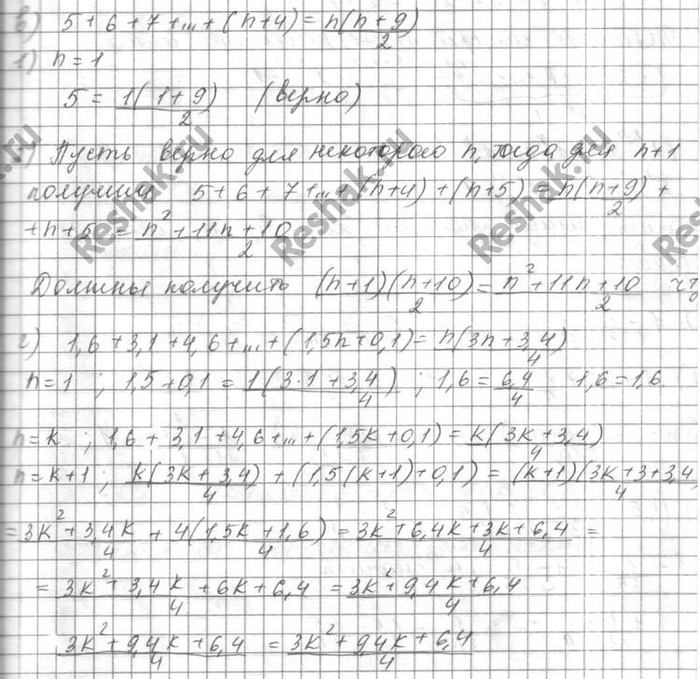 в) 5 + 6 + 7 + ... + (n+4) = n(n+9)/2
1) n = 1
5 = 1(1+9)/2 (верно)
Пусть верно для некоторого n, тогда для n+1
получим 5 + 6 + 7 + ... + (n+4) + (n+5) = n(n+9)/2 +
+ n + 5 = n² + 11n + 10/2
Должны получить (n+1)(n+10)/2 = n² + 11n + 10/2 чт
г) 1,6 + 3,1 + 4,6 + ... + (1,5n + 0,1) = n(3n + 3,4)/4
n = 1 ; 1,5 + 0,1 = 1(3·1 + 3,4)/4 ; 1,6 = 6,4/4 1,6 = 1,6.
n = k ; 1,6 + 3,1 + 4,6 + ... + (1,5k + 0,1) = k(3k + 3,4)/4
n = k+1 ; k(3k + 3,4)/4 + (1,5(k+1) + 0,1) = (k+1)(3k + 3 + 3,4/4
= 3k² + 3,4k/4 + 4(1,5k + 1,6)/4 = 3k² + 6,4k + 3k + 6,4/4 =
= 3k² + 3,4k + 6k + 6,4/4 = 3k² + 9,4k + 6,4/4
3k² + 9,4k + 6,4/4 = 3k² + 9,4k + 6,4/4
Reshak.ru
Reshak.ru
Reshak.ru